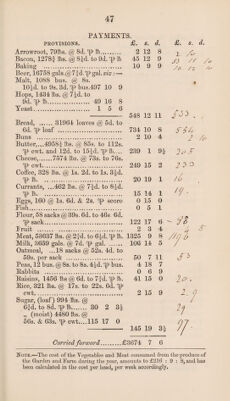 47
PAYMENTS.
PROVISIONS. £. s. d. £. s. d.
Arrowroot, 79lbs. @ 8d. ℔ lb 2 12 8
Bacon, 1278½ lbs. @ 8½d. to 9d. ℔ lb 45 12 9
Baking 10 9 9
Beer, 16758 gals. @ 7½d. ℔ gal. viz:—
Malt, 1088 bus. @ 8s.
10½d. to 9s. 3d. ℔ bus. 497 10 9
Hops, 1434 lbs. @ 7½d. to
9d. ℔ lb. 49 16 8
Yeast 1 5 6
548 12 11 533
Bread, 31964 loaves @ 5d. to
6d. ℔ loaf 734 10 8
Buns 2 10 4
Butter, 4958½ lbs. @ 85s. to 112s.
℔ cwt. and 12d. to 15½d. ℔ lb. 239 1 9½
Cheese, 7574 lbs. @ 73s. to 76s.
℔ cwt. 249 15 2
Coffee, 328 lbs. @ 1s. 2d. to 1s. 3½d.
℔ lb. 20 19 1
Currants, 462 lbs. @ 7½d. to 8½d.
℔ lb. 15 14 1
Eggs, 160 @ 1s. 6d. & 2s. ℔ score 0 15 0
Fish 0 5 1
Flour, 58 sacks @ 39s. 6d. to 46s. 6d.
℔ sack 122 17 6
Fruit 2 3 4
Meat, 53637 lbs. @ 2½d. to 6½d. ℔ lb. 1325 9 8
Milk, 3659 gals. @ 7d. ℔ gal. 106 14 5
Oatmeal, 18 sacks @ 52s. 4d. to
59s. per sack 50 7 11 53
Peas, 12 bus. @ 8s. to 8s. 4½d. ℔ bus. 4 18 7
Rabbits 0 6 9
Raisins, 1456 lbs @ 6d. to 7½d. ℔ lb. 41 15 0
Rice, 321 lbs. @ 17s. to 22s. 6d. ℔
cwt. 2 15 9
Sugar, (loaf) 994 lbs. @
6½d. to 8d. ℔ lb. 30 2 3½
„ (moist) 4480 lbs. @
56s. & 63s. ℔ cwt. 115 17 0
145 19 3½
Carried forward £3674 7 6
NOTE.—The cost of the Vegetables and Meat consumed from the produce of
the Garden and Farm during the year, amounts to £216 : 9 : 8, and has
been calculated in the cost per head, per week accordingly.